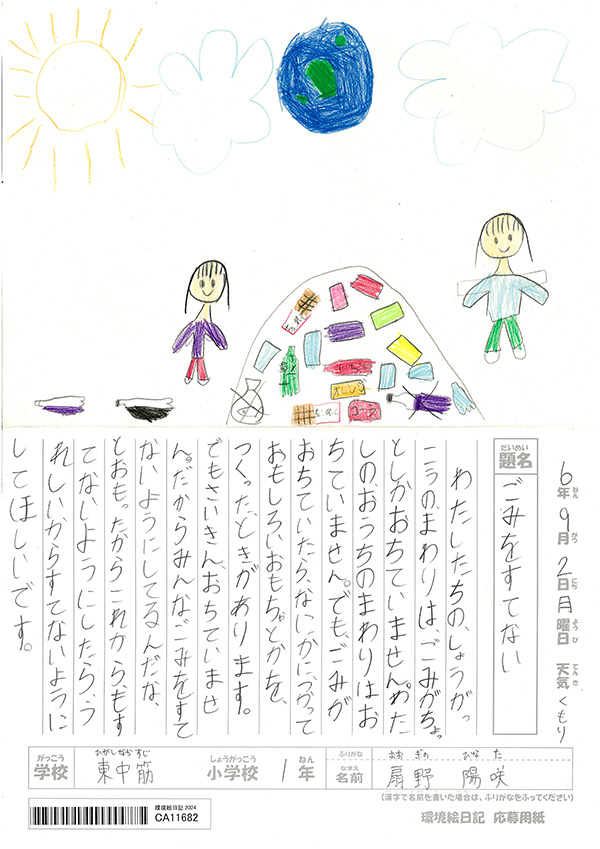 6年ねん9月がつ2日にち月曜日ようび 天気てんき くもり
だいめい
題名
ごみをすてない
わたしたちの、しょうがっ
こうの、まわりは、ごみがちょっ
としかおちていません。わた
しのおうちのまわりはお
ちていません。でも、ごみが
おちていたら、なにかにつかって
おもしろいおもちゃとかを、
つくったときがあります。
でもさいきんおちていませ
ん。だからみんなごみをすて
ないようにしてるんだな、
とおも。たからこれからもす
てないようにしたら、う
れしいからすてないように
してほしいです。
がっこう
学校
ひがしなかすじ
東中筋
しょうがっこう
小学校
1年ねん
ふりがな
なまえ
名前
おおぎの ひなた
扇野 陽咲
(漢字で名前を書いた場合は、ふりがなをふってください)
環境絵日記 2024
CA11682
環境絵日記 応募用紙
オレンジ
コーラ